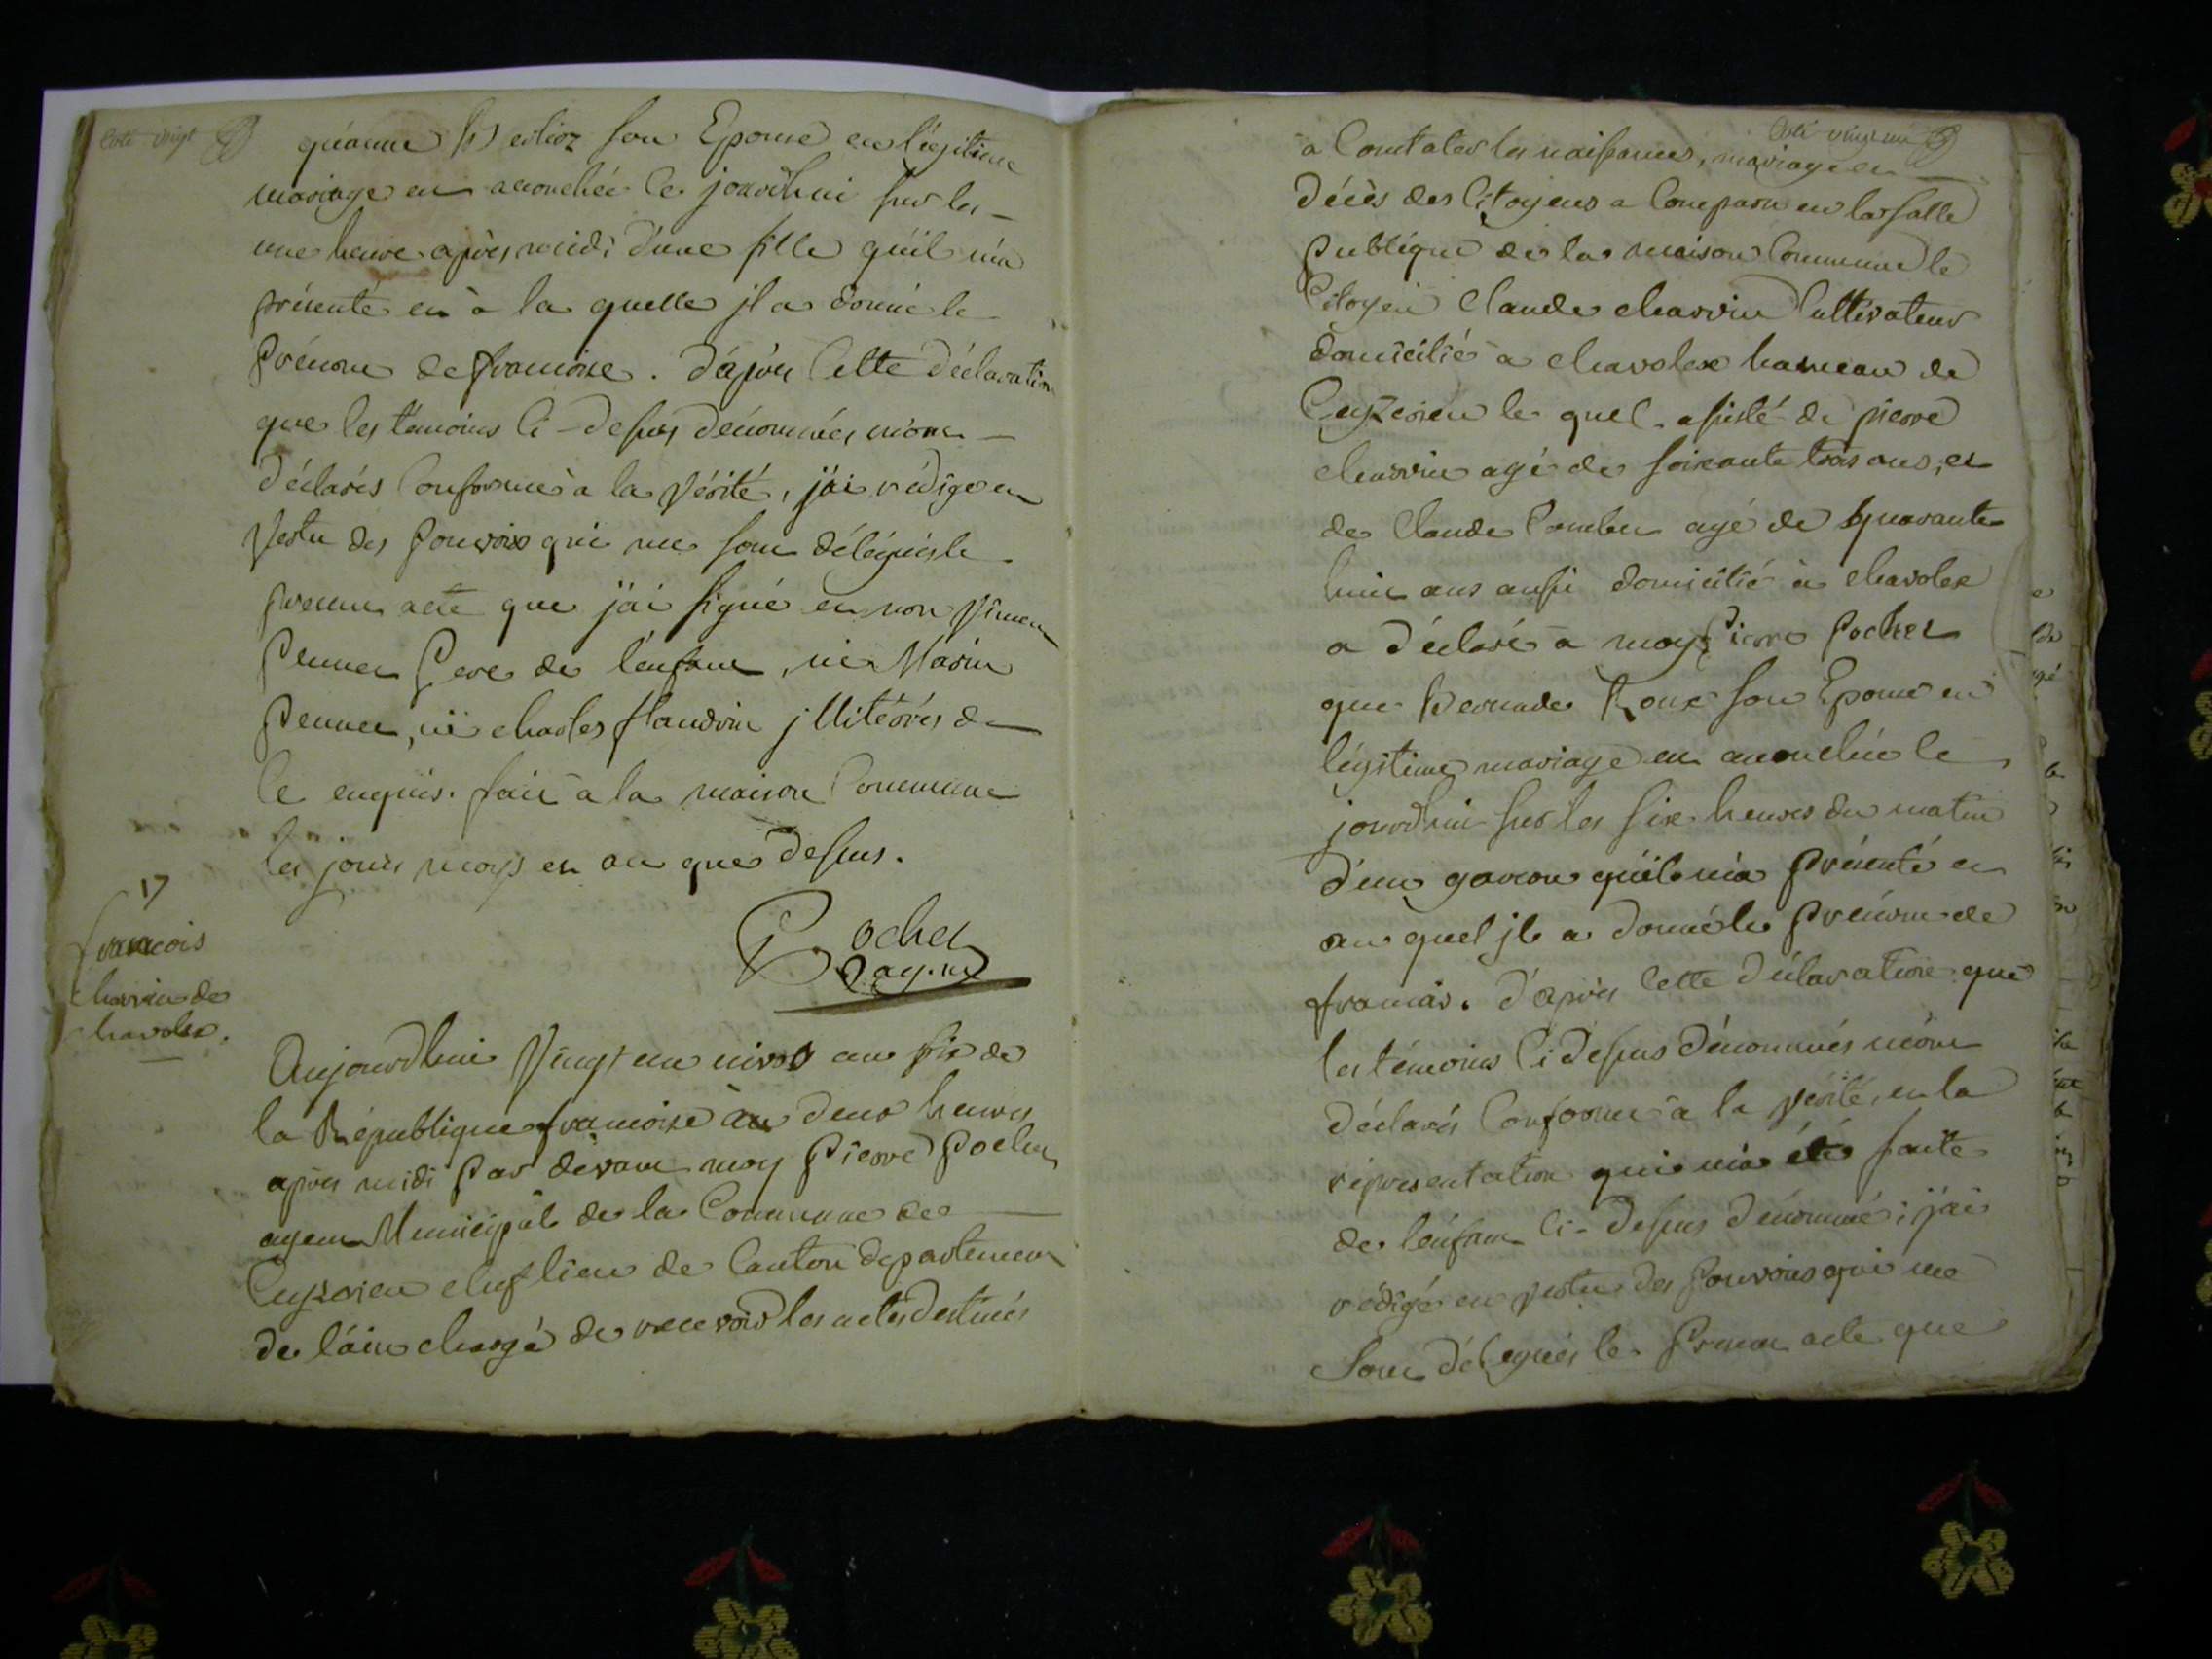 Coté vingt
quéanne Berlioz son Epouse en légitime
mariage est accouchée ce jourdhui sur les
une heure après midi d'une fille quil m'a
présenté et à la quelle jl a donné le
Prénom de francoise. D'après Cette Déclaration
que les témoins Ci-dessus dénommés m'ont
déclarés Conforme à la Vérité, j'ai rédigé en
Vertu des Pouvoirs qui me sont délégués le
present acte que j'ai signé et non Vincent
Pennet Pere de l'enfant, ni Marin
Pennet, ni charles flandrin jllitérés de
Ce enquis. fait à la maison Commune
les jours moys et an que dessus.
Pochet
agent
17
francois
charvin de
chavolex.
Aujourdhui Vingt un nivos an six de
la République francoise à deux heures
après midi Par devant moy Pierre Pochet
agent Municipal de la Commune de
Ceyzerieu cheflieu de Canton departement
de l'ain chargé de recevoir les actes destinés
Coté vingt un
a Constater les naissances, mariages et
Décès des Citoyens a Comparu en la salle
Publique de la maison Commune le
Citoyen Claude charvin Cultivateur
domicilié a chavolex hameau de
Ceyzerieu le quel assisté de pierre
charvin agé de soixante trois ans, et
de Claude Combet agé de quarante
huit ans aussi domicilié à chavolex
a déclaré a moy Pierre Pochet
que Bernade Roux son Epouse en
légitime mariage est accouchée ce
jourdhui sur les six heures du matin
d'un garcon quil m'a Présenté et
au quel jl a donné le Prénom de
francois. d'après Cette déclaration que
les témoins Ci dessus dénommés m'ont
déclarés Conforme à la Vérité, et la
représentation qui m'a été faite
de l'enfant Ci-dessus dénommé; j'ai
rédigé en Vertu des Pouvoirs qui me
sont délégués le Present acte que